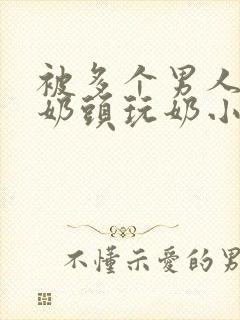 被多个男人
奶頭玩奶小
不懂示愛的男